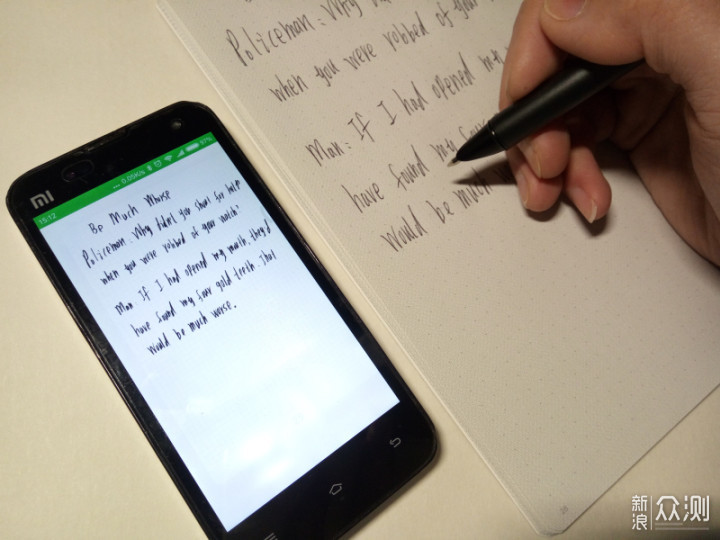 mi
15:12 0.05K/s 97%
Be Much Worse
Policeman: Why didn't you shout for help
when you were robbed of your watch?
Man: If I had opened my mouth, they'd
have found my four gold teeth. That
would be much worse.
Policeman: Why
when you were robbed of your
Man: If I had opened my
have found my four
would be much
新浪 众测